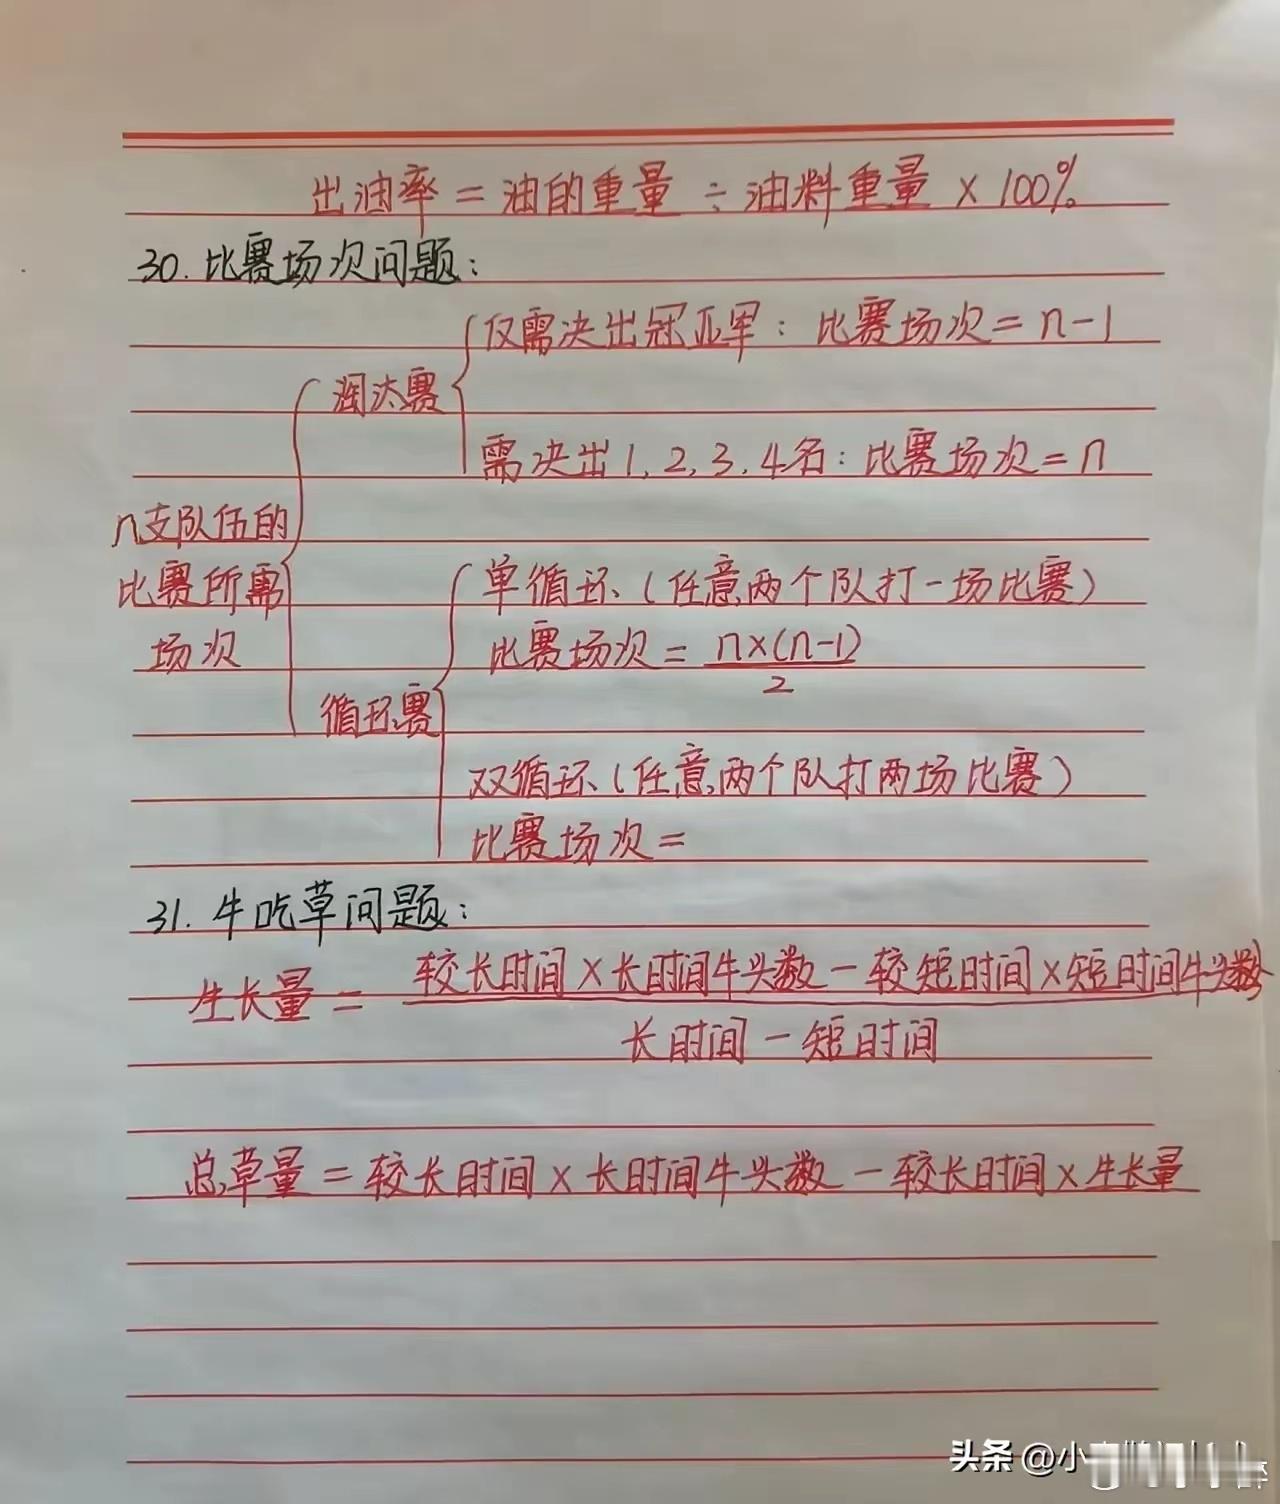 出油率 = 油的重量 ÷ 油料重量 × 100%
30. 比赛场次问题：
仅需决出冠亚军：比赛场次 = n-1
淘汰赛
需决出1，2，3，4名：比赛场次 = n
n支队伍的
比赛所需
场次
单循环（任意两个队打一场比赛）
比赛场次 = n×(n-1)/2
循环赛
双循环（任意两个队打两场比赛）
比赛场次 =
31. 牛吃草问题：
生长量 = 较长时间×长时间牛头数-较短时间×短时间牛头数
长时间-短时间
总草量 = 较长时间×长时间牛头数-较长时间×生长量
头条 @小